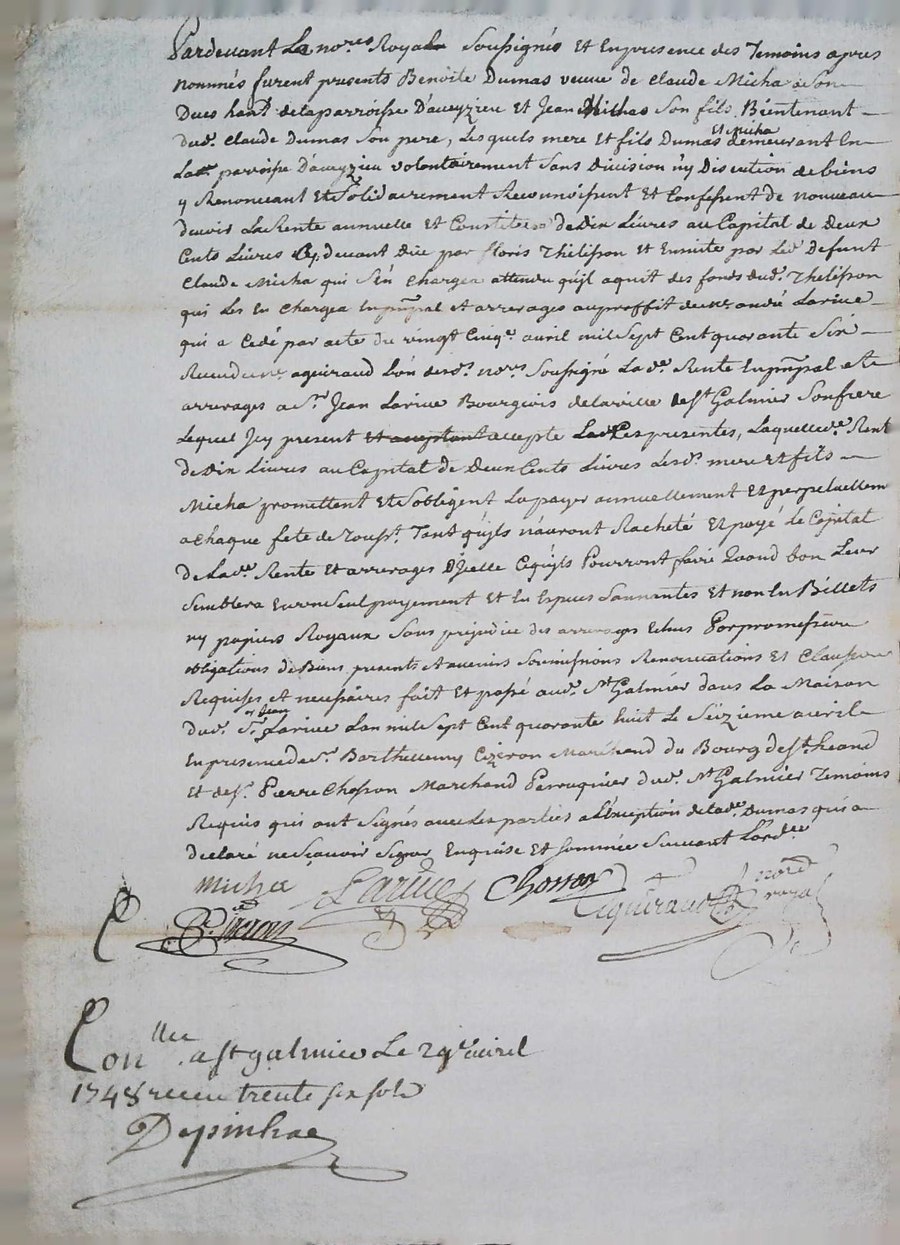 Pardevant Le no.res Royal Soussignés Et En presence des Temoins apres
nommés furent presents Benoite Dumas veuve de Claude Micha de Son
Dues han.t delaparroisse D'aveyzieu Et Jean Michas Son fils Bientenant
dud. Claude Dumas Son pere, Lesquels mere et fils Dumas Et Micha demeurant En
Lad.te parroisse D'aveyzieu volontairement Sans Division n'y Discution de biens
y Renoncant Et Solidairement Reconnoissent Et Confessent de nouveau
devoir La Rente annuelle et Constituee De Dix Livres au Capital de Deux
Cents Livres Cy devant Düe par floris Thélisson Et Ensuite par Led. Defunt
Claude Micha qui S'En Chargea attendu qu'jl aquit des fonds dud. Thélisson
qui Les En Chargea En pnpal et arrerages au proffit de me. andré Larive
qui a Cédé par acte du vingt Cinq.e avril mil Sept Cent quarante Six
Receu dud. me. aguiraud L'ún desd. no.res Soussigné Lad.e Rente En pnpal et
arrerages a S.r Jean Larive Bourgeois de la ville de St. Galmier Son frere
Lequel Jcy present et acceptant accepte Les presentes, Laquelle d.e Rent
de Dix Livres au Capital de Deux Cents Livres Lesd. mere Et fils
Micha promettent Et S'obligent La payer annuellement Et perpetuellem
a chaque fete de Touss.t Tant qu'jls n'auront Racheté Et payé Le Capital
de Lad.e Rente Et arrerages D'Jcelle Ce qu'jls Pourront faire Quand bon Leur
Semblera En un Seul payement Et En Especes Sonnantes Et non En Billets
ny papiers Royaux Sans prejudice des arrerages Echus Par promesse
obligations de Biens presents Et avenirs Soumissions Renonciations Et Clauses
Requises et necessaires fait Et passé aud. St. Galmier dans La Maison
dud. S.r Jean Larive Lan mil Sept Cent quarante huit Le Seizieme avril
En presence de S.r Barthelemy Cizeron Marchand du Bourg de St. heand
Et de S.r Pierre Chosson Marchand Perruquier dud. St. Galmier Temoins
Requis qui ont Signés avec Les parties a L'Exception de lad.e Dumas qui a
declaré ne Sçavoir Signer Enquise et Sommée Suivant L'ord.ce
Micha Larive Chosson aguiraud nore royal
Cizeron
Con.llee a St galmier Le 29e avril
1748 receu trente six sols
Depinhac